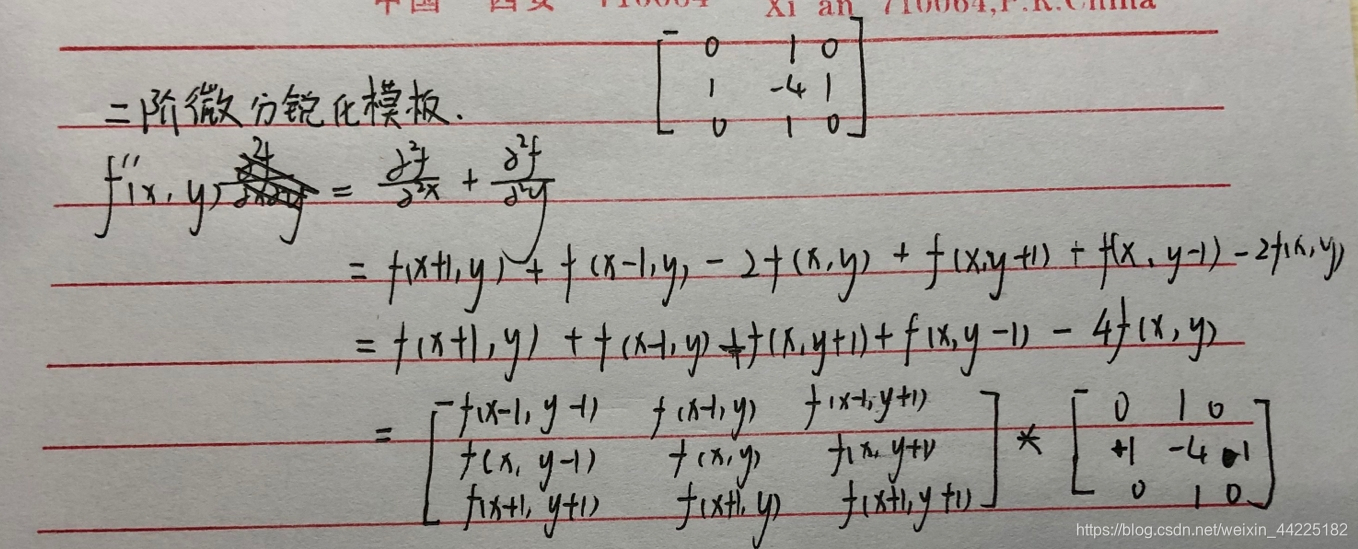 中国 西安 710064 Xi'an 710064, P.R.China
[0 1 0
1 -4 1
0 1 0]
二阶微分锐化模板.
f''(x,y) = ∂²f/∂²x + ∂²f/∂²y
= f(x+1,y) + f(x-1,y) - 2f(x,y) + f(x,y+1) + f(x,y-1) - 2f(x,y)
= f(x+1,y) + f(x-1,y) + f(x,y+1) + f(x,y-1) - 4f(x,y)
= [f(x-1,y-1) f(x-1,y) f(x-1,y+1) * [0 1 0
f(x,y-1) f(x,y) f(x,y+1) +1 -4 1
f(x+1,y+1) f(x+1,y) f(x+1,y+1)] 0 1 0]
https://blog.csdn.net/weixin_44225182